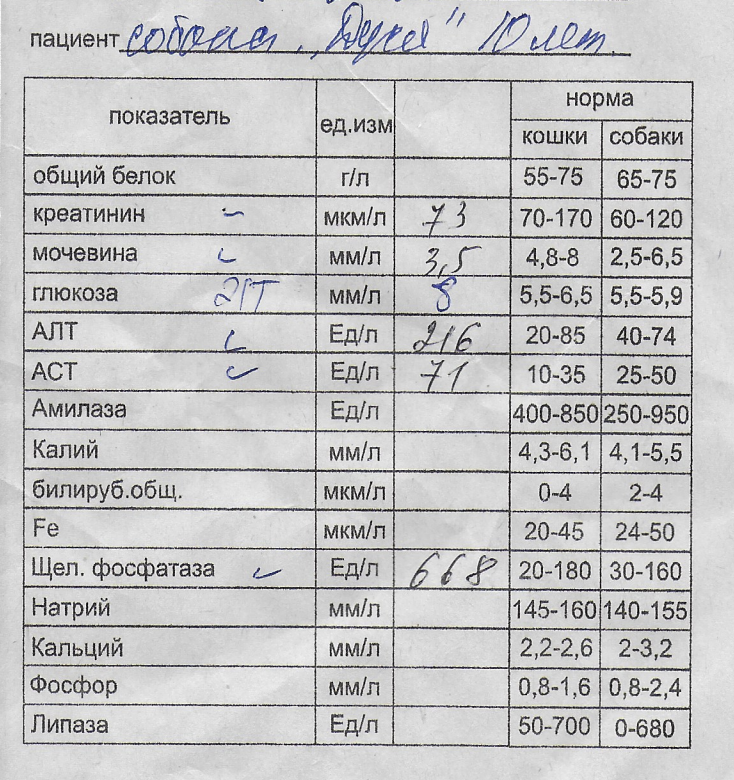 пациент собака „Дуся" 10 лет.
показатель ед.изм норма
кошки собаки
общий белок г/л 55-75 65-75
креатинин мкм/л 73 70-170 60-120
мочевина мм/л 3,5 4,8-8 2,5-6,5
глюкоза мм/л 8 5,5-6,5 5,5-5,9
АЛТ Ед/л 216 20-85 40-74
АСТ Ед/л 71 10-35 25-50
Амилаза Ед/л 400-850 250-950
Калий мм/л 4,3-6,1 4,1-5,5
билируб.общ. мкм/л 0-4 2-4
Fe мкм/л 20-45 24-50
Щел. фосфатаза Ед/л 668 20-180 30-160
Натрий мм/л 145-160 140-155
Кальций мм/л 2,2-2,6 2-3,2
Фосфор мм/л 0,8-1,6 0,8-2,4
Липаза Ед/л 50-700 0-680